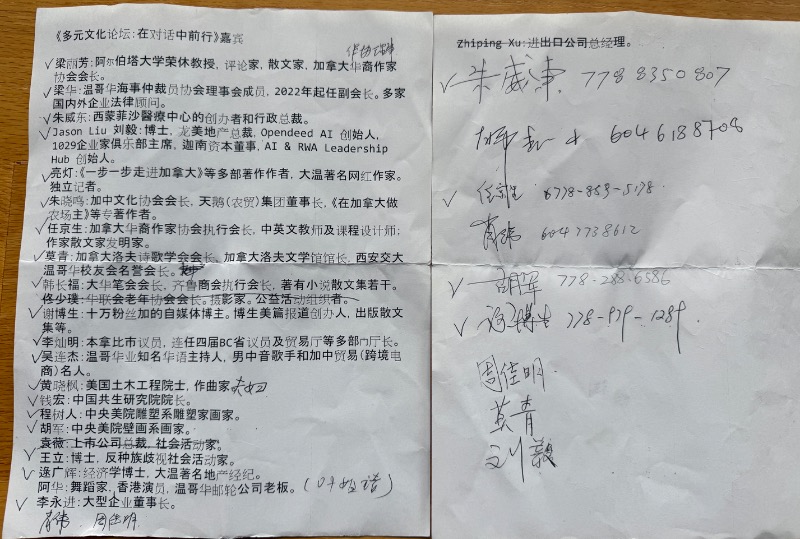 《多元文化论坛：在对话中前行》嘉宾
✓梁丽芳：阿尔伯塔大学荣休教授，评论家，散文家，加拿大华裔作家
协会会长。
✓梁华：温哥华海事仲裁员协会理事会成员，2022年起任副会长。多家
国内外企业法律顾问。
✓朱威东：西蒙菲沙醫療中心的创办者和行政总裁。
✓Jason Liu 刘毅：博士，龙美地产总裁，Opendeed AI 创始人，
1029企业家俱乐部主席，迦南资本董事，AI & RWA Leadership
Hub 创始人。
✓亮灯：《一步一步走进加拿大》等多部著作作者，大温著名网红作家。
独立记者。
朱晓鸣：加中文化协会会长，天鹅（农贸）集团董事长，《在加拿大做
农场主》等专著作者。
✓任京生：加拿大华裔作家协会执行会长，中英文教师及课程设计师；
作家散文家发明家。
✓莫青：加拿大洛夫诗歌学会会长、加拿大洛夫文学馆馆长，西安交大
温哥华校友会名誉会长。
✓韩长福：大华笔会会长，齐鲁商会执行会长，著有小说散文集若干。
佟少璞：华联会老年协会会长。摄影家。公益活动组织者。
✓谢博生：十万粉丝加的自媒体博主。博生美篇报道创办人，出版散文
集等。
✓李灿明：本拿比市议员，连任四届BC省议员及贸易厅等多部门厅长。
✓吴连杰：温哥华业知名华语主持人，男中音歌手和加中贸易（跨境电
商）名人。
✓黄晓枫：美国土木工程院士，作曲家 夫妇
✓钱宏：中国共生研究院院长。
✓程树人：中央美院雕塑系雕塑家画家。
✓胡军：中央美院壁画系画家。
袁薇：上市公司总裁，社会活动家。
✓王立：博士，反种族歧视社会活动家。
✓逯广辉：经济学博士，大温著名地产经纪。
阿华：舞蹈家，香港演员，温哥华邮轮公司老板。
✓李永进：大型企业董事长。
肖伟 周佳明
Zhiping Xu：进出口公司总经理。
✓朱威东 778 8350807
604 6188708
✓任京生 6778-853-5178
肖伟 604 7738612
✓胡军 778-288-6586
✓谢博生 778-979-1289
周佳明
莫青
刘毅